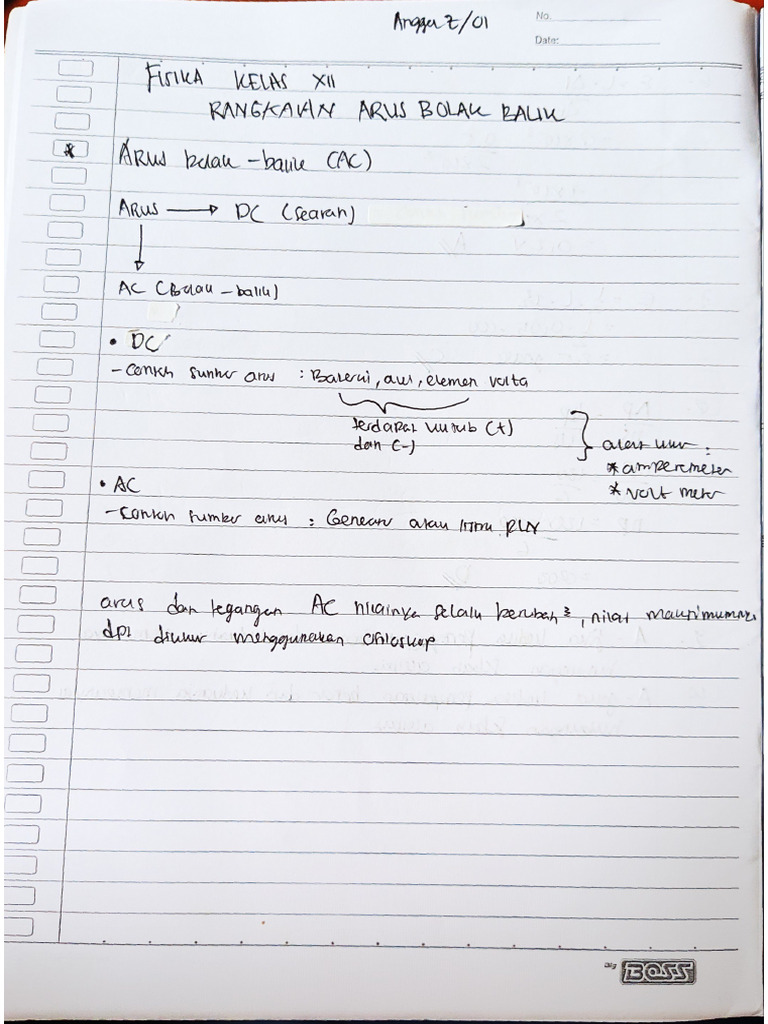 Angga Z/01
No.
Date:
FISIKA KELAS XII
RANGKAIAN ARUS BOLAK BALIK
* ARUS bolak-balik (AC)
ARUS → DC (searah)
↓
AC (Bolak-balik)
• DC
- Contoh sumber arus : Baterai, aki, elemen volta
terdapat kutub (+)
dan (-)
alat ukur :
* amperemeter
* volt meter
• AC
- Contoh sumber arus : Generator atau listrik PLN
arus dan tegangan AC nilainya selalu berubah², nilai maksimumnya
dpt diukur menggunakan osiloskop
Big BOSS